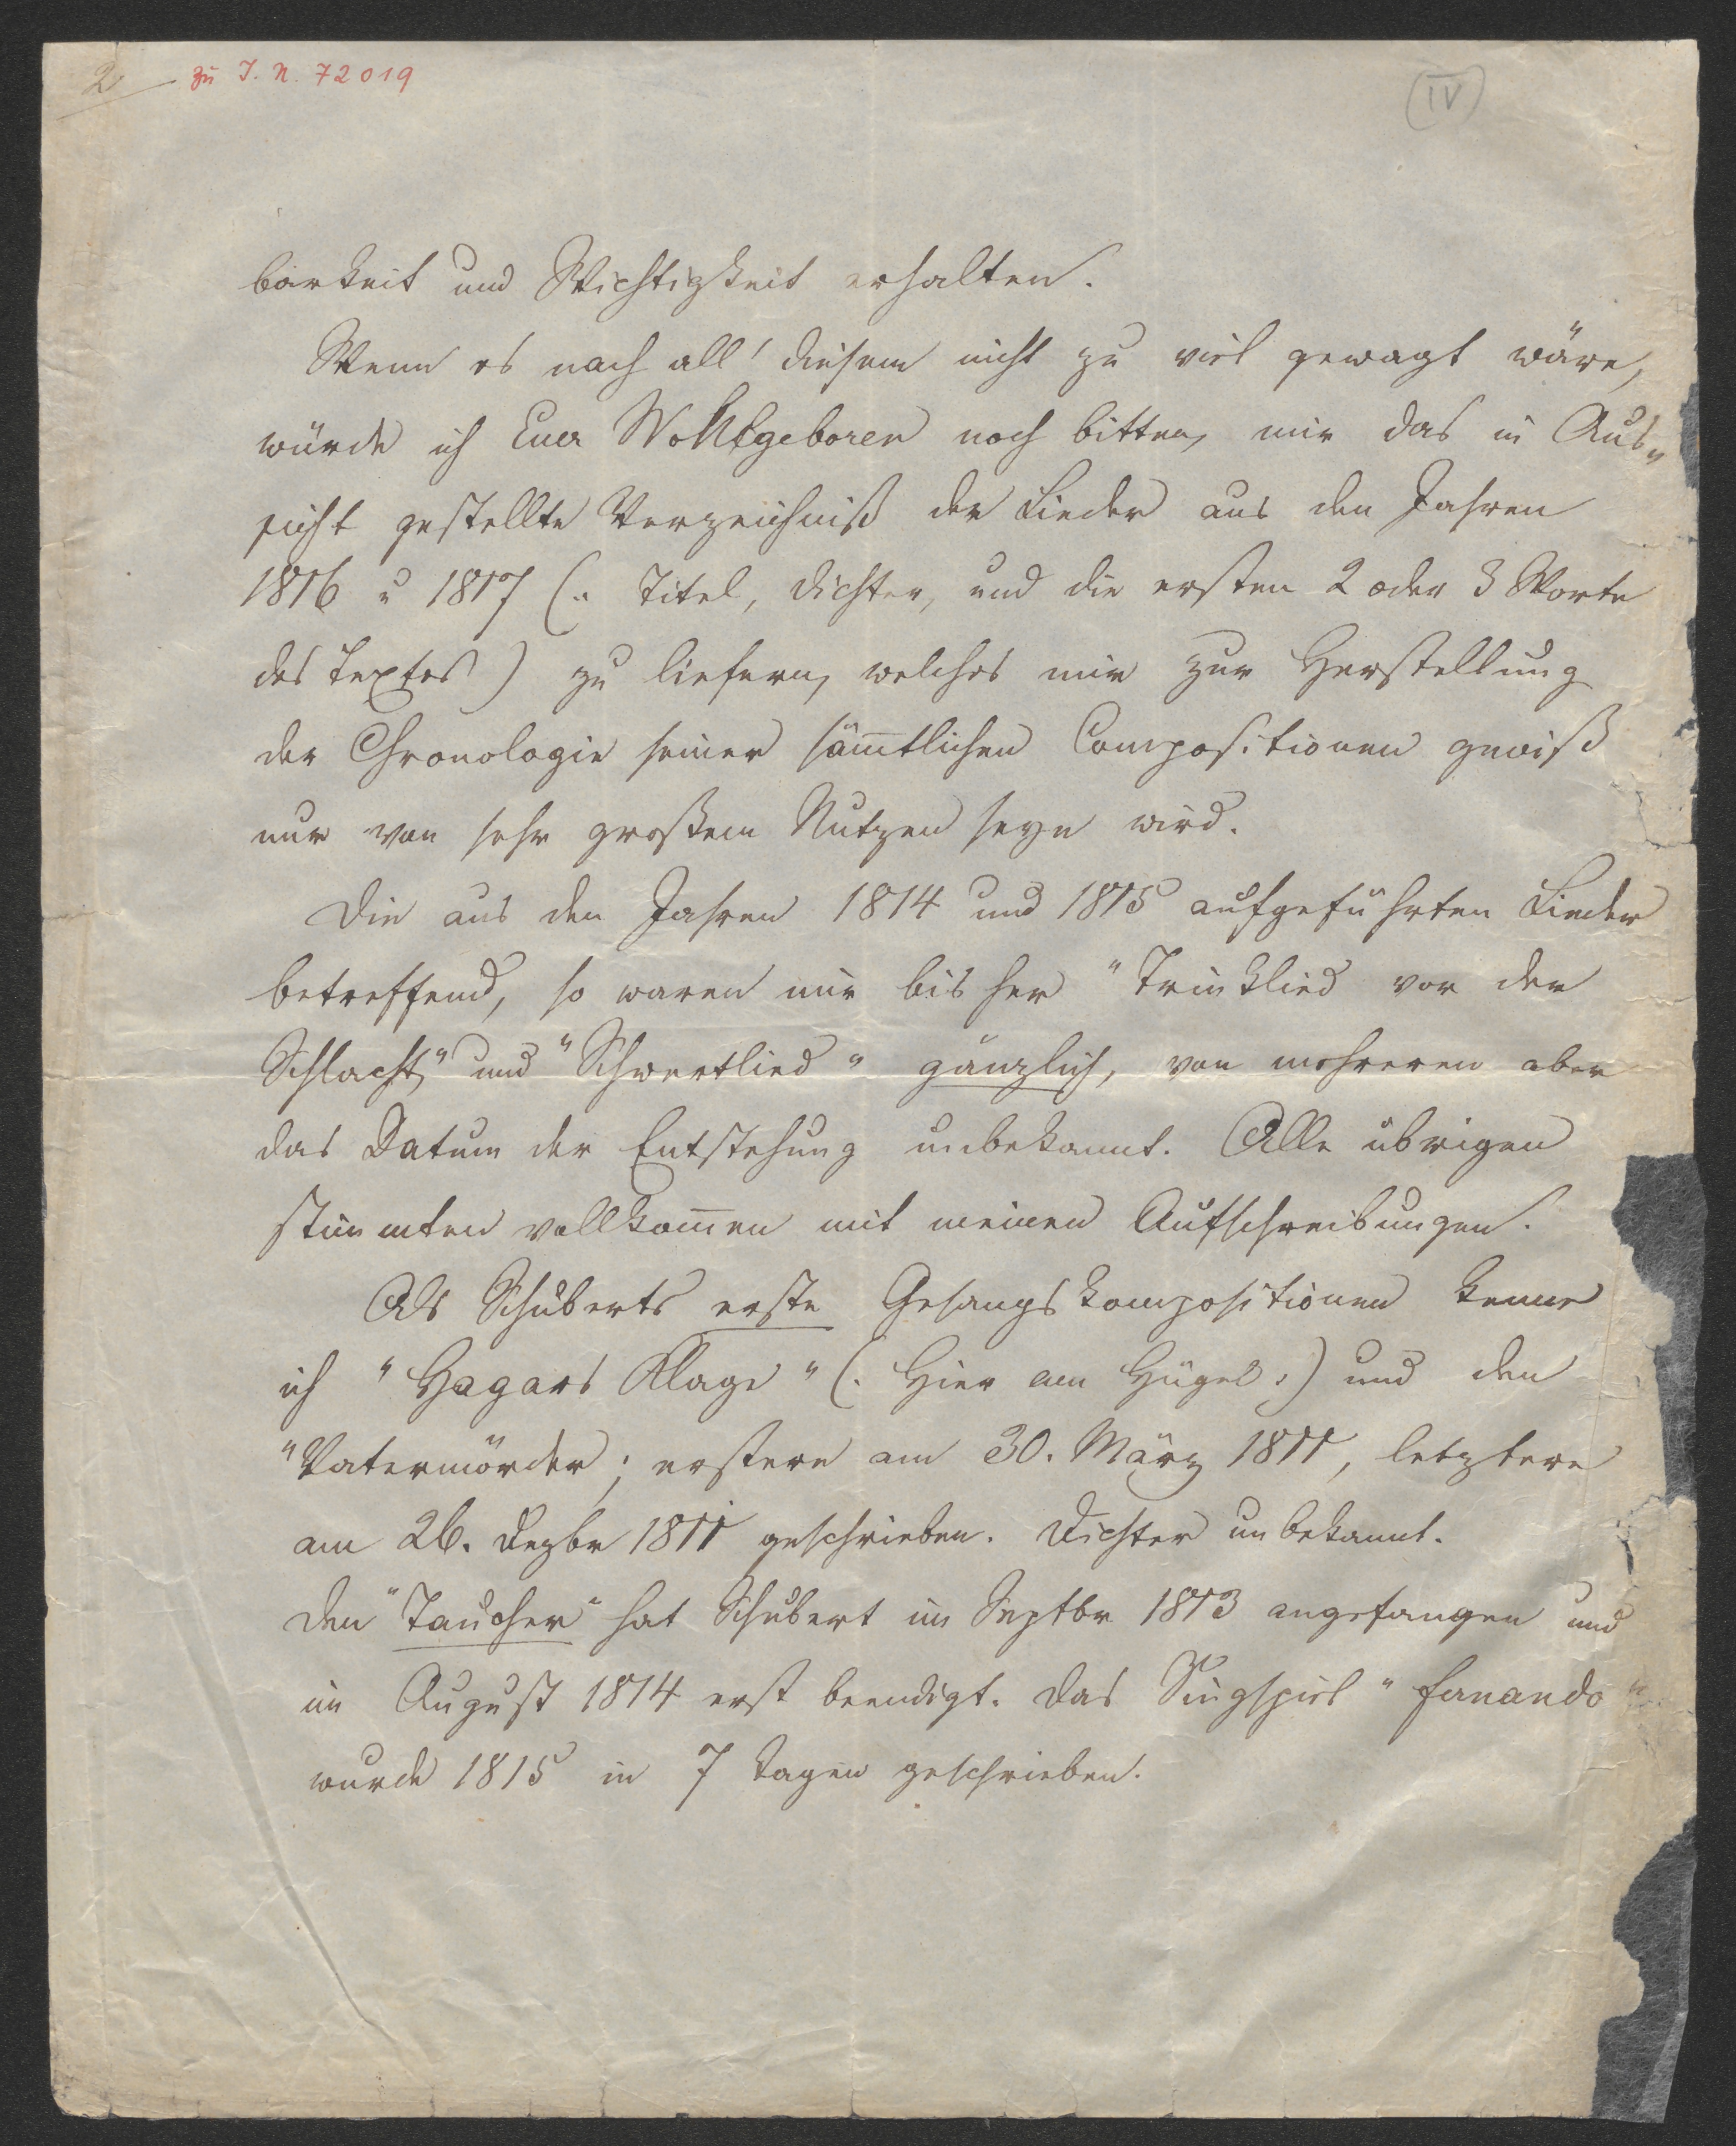 2
zu I. N. 72019
(IV)
barkeit und Wichtigkeit erhalten.
Wenn es nach all' diesem nicht zu viel gewagt wäre,
würde ich Euer Wohlgeboren noch bitten, mir das in Aus„
sicht gestellte Verzeichniß der Lieder aus den Jahren
1816 u 1817 (: Titel, Dichter, und die ersten 2 oder 3 Worte
des Textes) zu liefern, welches mir zur Herstellung
der Chronologie seiner sämtlichen Compositionen gewiß
nur von sehr großem Nutzen seyn wird.
Die aus den Jahren 1814 und 1815 aufgeführten Lieder
betreffend, so waren mir bisher "Trinklied vor der
Schlacht" und "Schwertlied" gänzlich, von mehreren aber
das Datum der Entstehung unbekannt. Alle übrigen
stimmten vollkomen mit meinen Aufschreibungen.
Als Schuberts erste Gesangskompositionen kenne
ich "Hagars Klage" (: Hier am Hügel :) und den
"Vatermörder; erstere am 30. März 1811, letztere
am 26. Dezbr 1811 geschrieben. Dichter unbekannt.
Den "Taucher" hat Schubert im Septbr 1813 angefangen und
im August 1814 erst beendigt. Das Singspiel "Fernando"
wurde 1815 in 7 Tagen geschrieben.